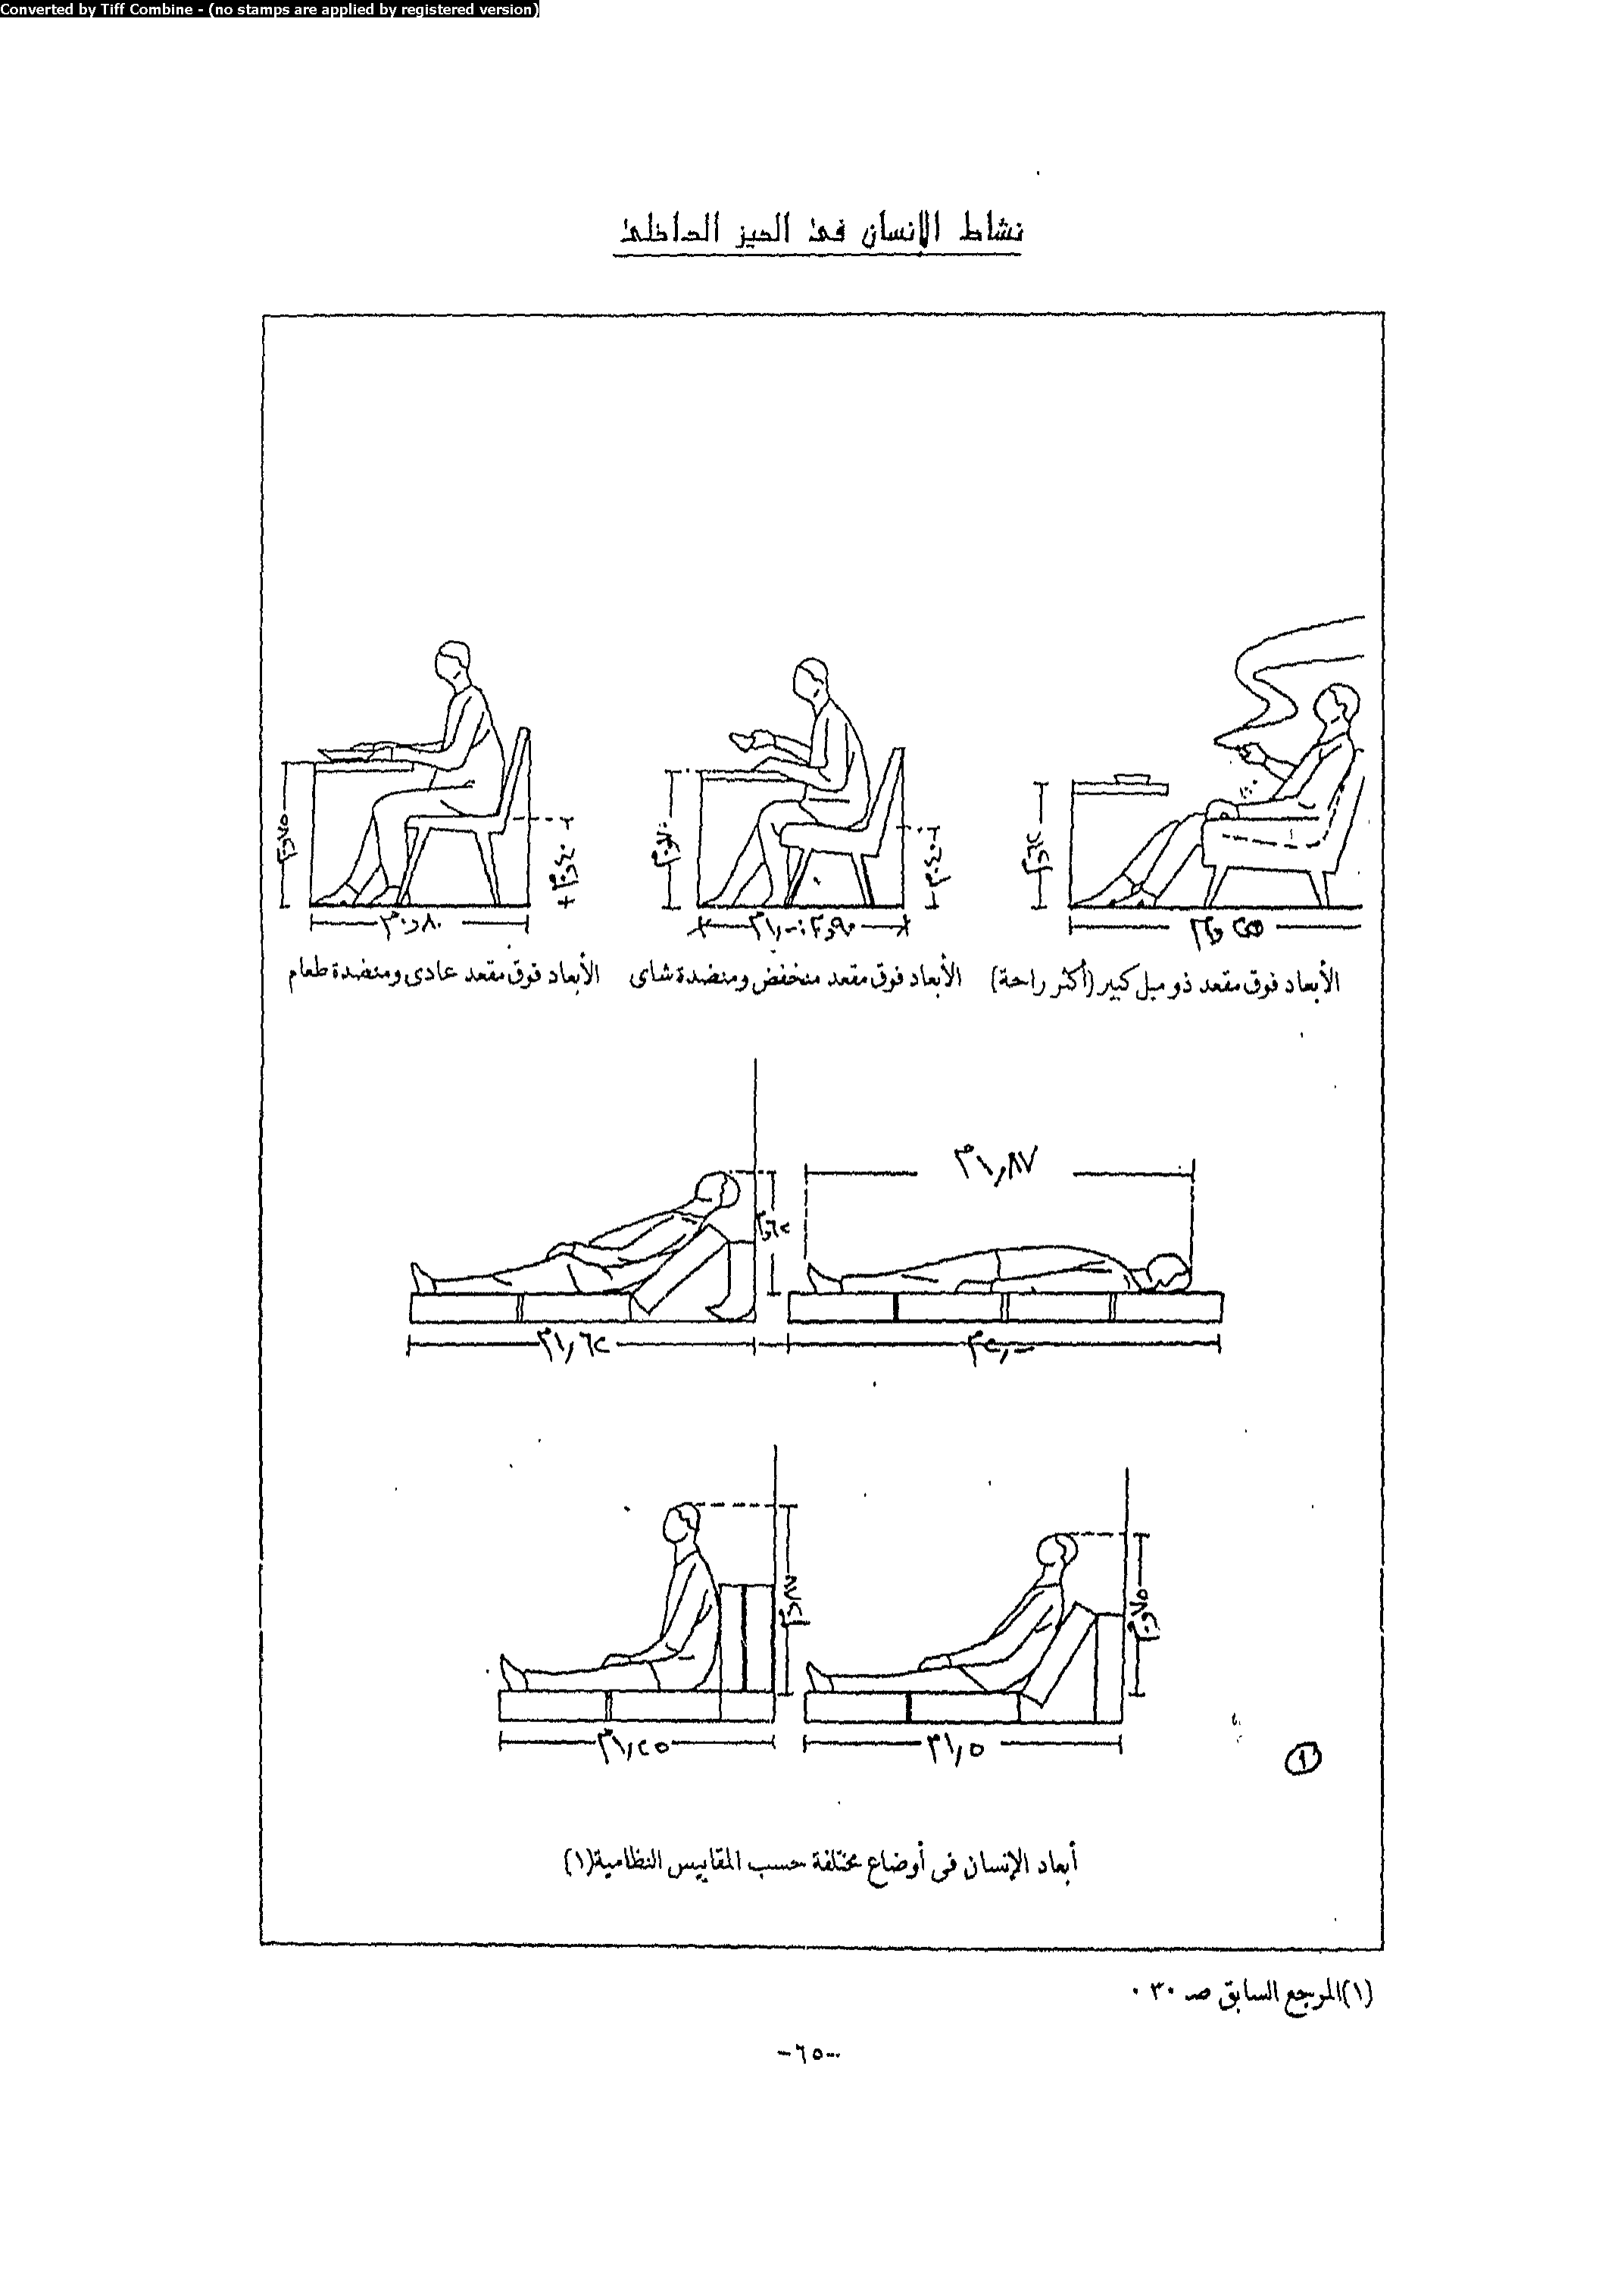 Converted by Tiff Combine - (no stamps are applied by registered version)
نشاط الإنسان فى الحيز الداخلى
٠٫٧٥م
٠٫٤٠م
٠٫٨٠م
٠٫٧٠م
٠٫٤٠م
٠٫٩٠م : ١٫٠٠م
الأبعاد فوق مقعد ذو ميل كبير (أكثر راحة)
الأبعاد فوق مقعد منخفض ومنضدة شاى
الأبعاد فوق مقعد عادى ومنضدة طعام
١٫٨٧م
١٫٦٢م
٢٫٠٠م
٠٫٨٧م
٠٫٧٥م
١٫٢٥م
١٫٥م
١
أبعاد الإنسان فى أوضاع مختلفة حسب المقاييس النظامية (١)
(١) المرجع السابق صـ ٣٠ .
-٦٥-